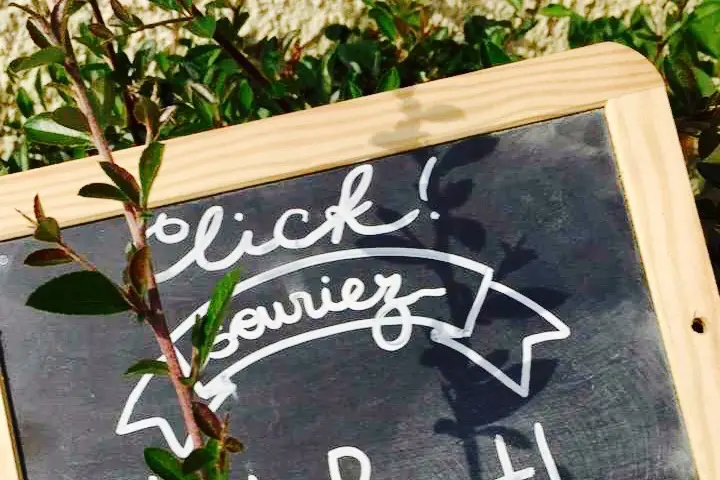 Click!
Souriez